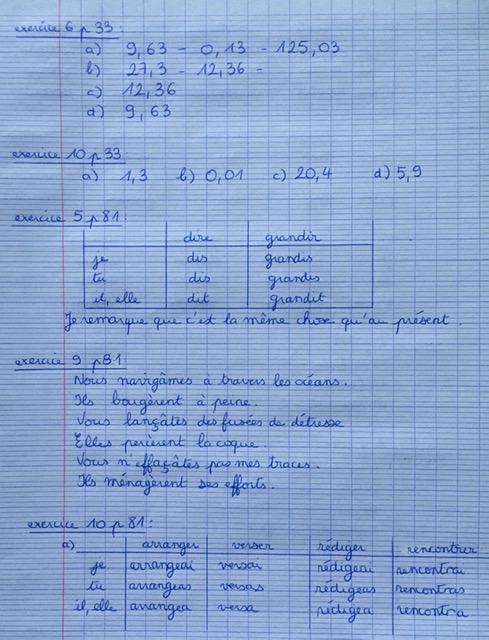 exercice 6 p 33 :
a) 9,63 - 0,13 - 125,03
b) 27,3 - 12,36 -
c) 12,36
d) 9,63
exercice 10 p 33
a) 1,3 b) 0,01 c) 20,4 d) 5,9
exercice 5 p 81 :
dire grandir
je dis grandis
tu dis grandis
il, elle dit grandit
Je remarque que c'est la même chose qu'au présent.
exercice 9 p81 :
Nous navigâmes à travers les océans.
Ils bougèrent à peine.
Vous lançâtes des fusées de détresse
Elles percèrent la coque.
Vous n'effaçâtes pas mes traces.
Ils ménagèrent ses efforts.
exercice 10 p 81 :
a) arranger verser rédiger rencontrer
je arrangeai versai rédigeai rencontrai
tu arrangeas versas rédigeas rencontras
il, elle arrangea versa rédigea rencontra